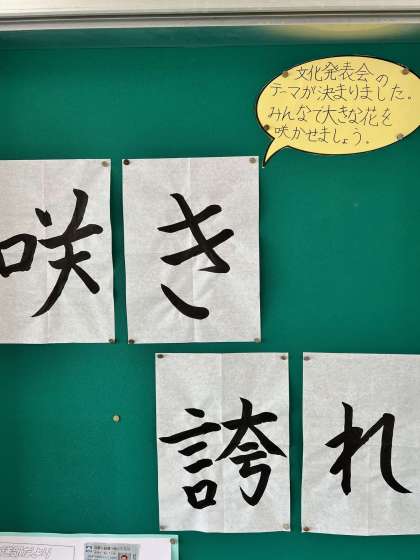 文化発表会の
テーマが決まりました。
みんなで大きな花を
咲かせましょう。
咲き
誇れ